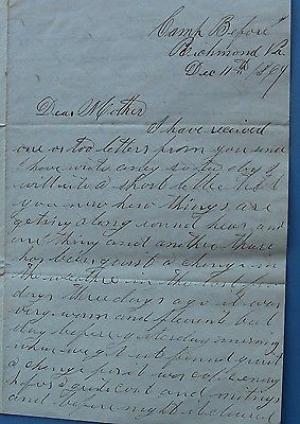 Camp Before
Richmond Va
Dec 11th 1864
Dear Mother
I have received
one or too letters from you since
I have wrote and so to day I
will write a short letter to let
you now how things are
geting along round hear and
one thing and another there
has been quit a change in
the weather in the last few
days three days ago it was
very warm and pleasent but
day before yesterday morning
when we got up found quit
a change for it was cold enny
for a grate coat and mittings
and before night it